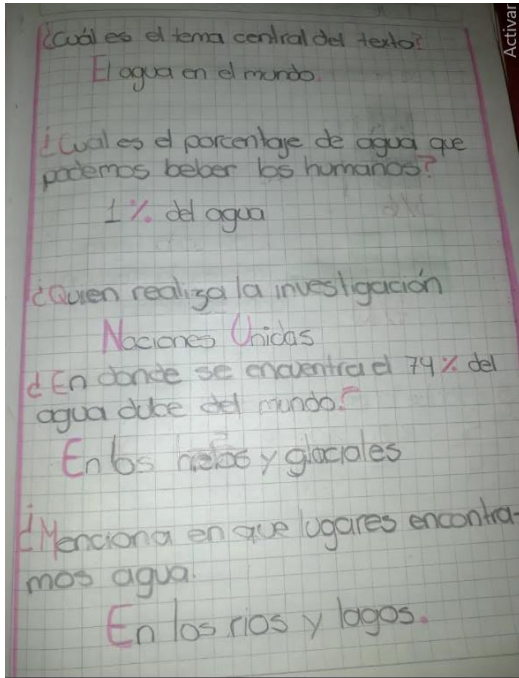 ¿Cuál es el tema central del texto?
El agua en el mundo.
¿Cual es el porcentaje de agua que
podemos beber los humanos?
1% del agua
¿Quien realiza la investigación
Naciones Unidas
¿En donde se encuentra el 74% del
agua dulce del mundo?
En los y glaciales
¿Menciona en que lugares encontra-
mos agua.
En los rios y lagos.
Activar